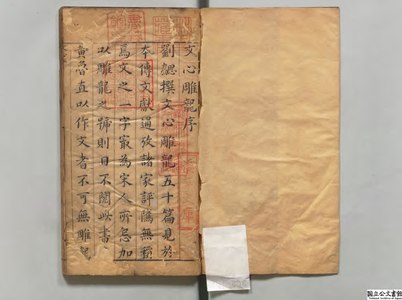 文心雕龍序
劉勰撰文心雕龍五十篇見於
本傳文獻通攷諸家評隲無預
爲文之一字最為宋人所忌加
以雕龍之號則目不閱此書
黄魯直以作文者不可無雕龍
國立公文書館